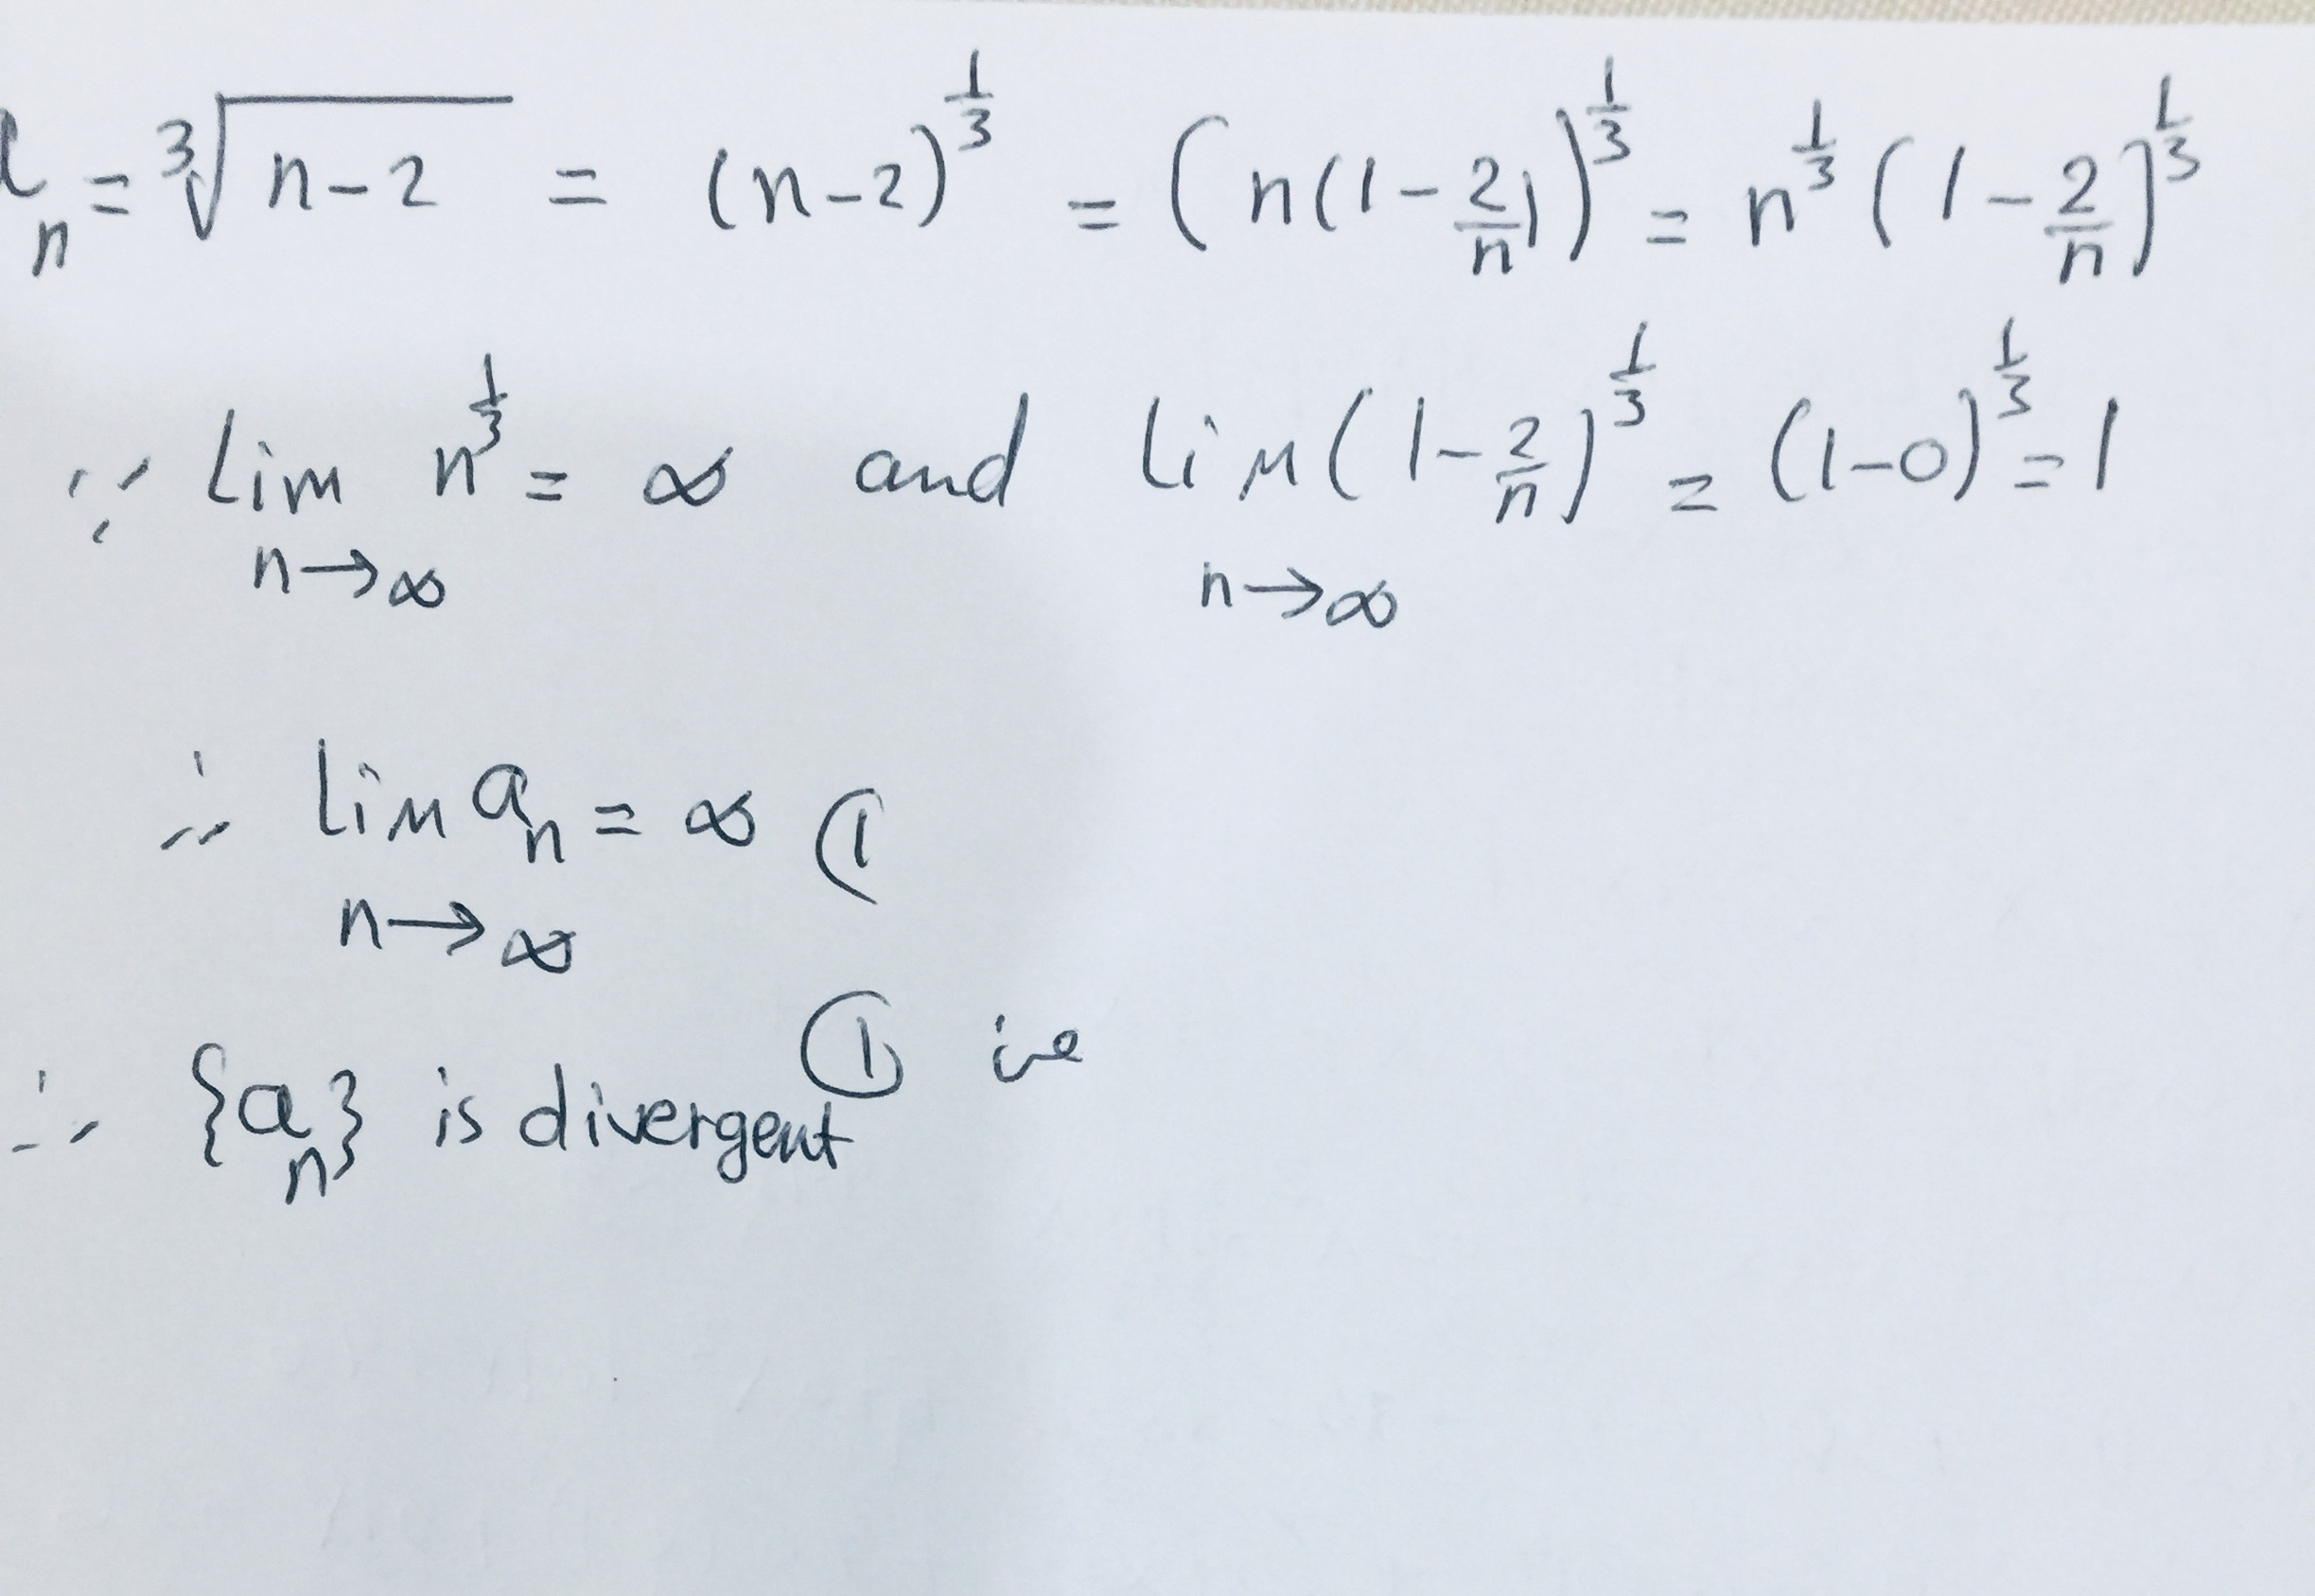 a_n = ∛(n-2) = (n-2)^(1/3) = (n(1-2/n))^(1/3) = n^(1/3) (1-2/n)^(1/3)
∵ Lim n^(1/3) = ∞ and Lim (1-2/n)^(1/3) = (1-0)^(1/3) = 1
n→∞ n→∞
∴ lim a_n = ∞ ①
n→∞
∴ {a_n} is divergent ①